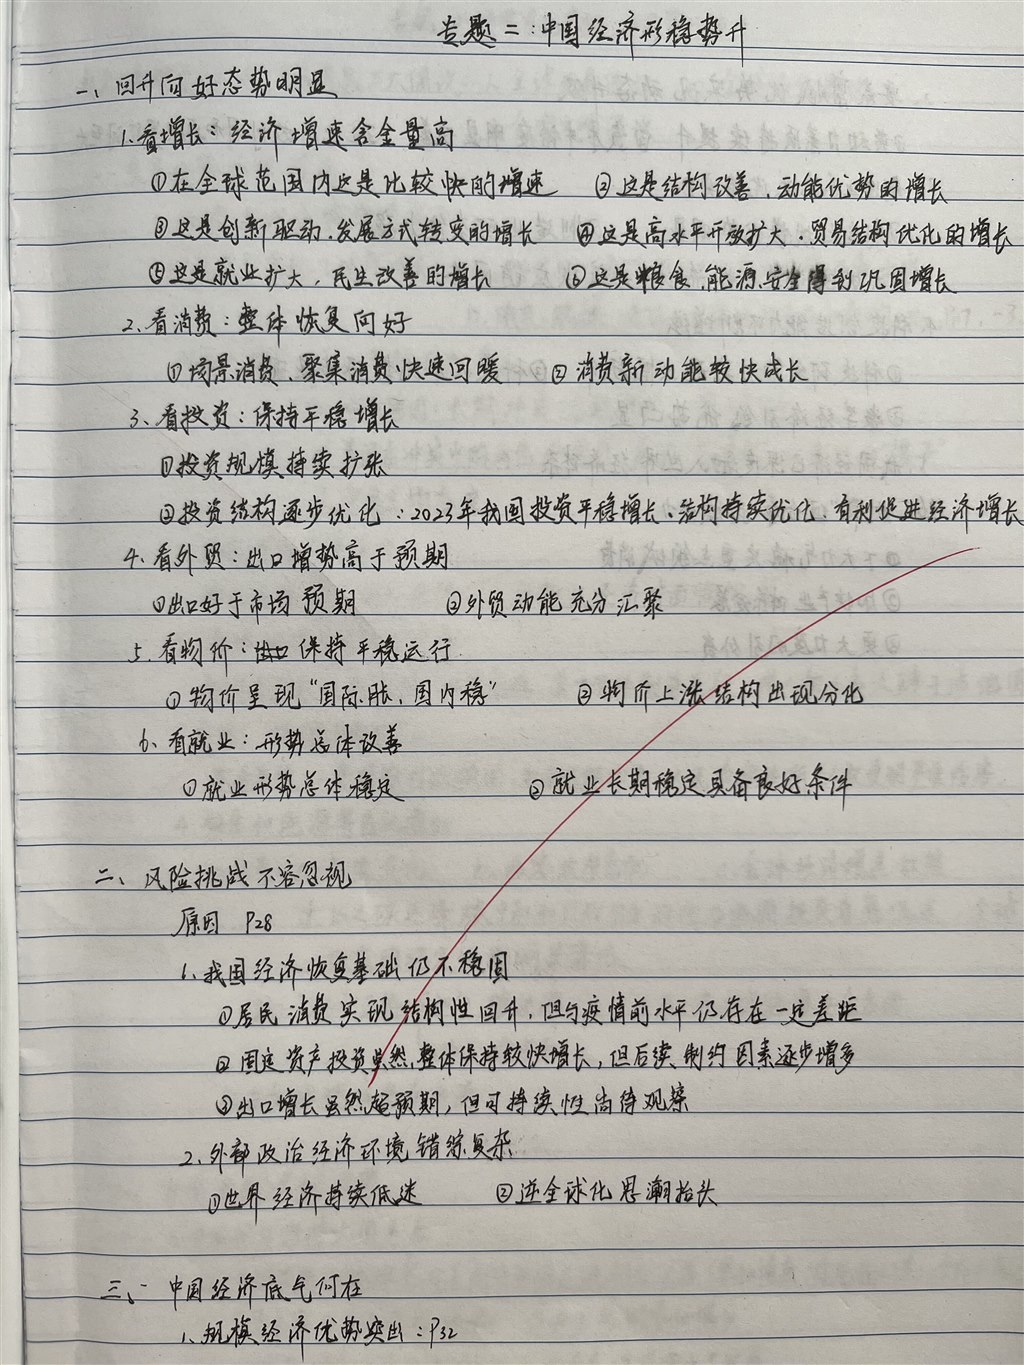 专题二:中国经济形稳势升
一、回升向好态势明显
1.看增长:经济增速含金量高
①在全球范围内这是比较快的增速 ②这是结构改善、动能优势的增长
③这是创新驱动、发展方式转变的增长 ④这是高水平开放扩大、贸易结构优化的增长
⑤这是就业扩大,民生改善的增长 ⑥这是粮食、能源、安全得到巩固增长
2.看消费:整体恢复向好
①场景消费、聚集消费快速回暖 ②消费新动能较快成长
3、看投资:保持平稳增长
①投资规模持续扩张
②投资结构逐步优化:2023年我国投资平稳增长、结构持续优化、有利促进经济增长
4.看外贸:出口增势高于预期
①出口好于市场预期 ②外贸动能充分汇聚
5、看物价:保持平稳运行
①物价呈现“国际胀、国内稳” ②物价上涨结构出现分化
6、看就业:形势总体改善
①就业形势总体稳定 ②就业长期稳定具备良好条件
二、风险挑战不容忽视
原因 P28
1、我国经济恢复基础仍不稳固
①居民消费实现结构性回升,但与疫情前水平仍存在一定差距
②固定资产投资虽然整体保持较快增长,但后续制约因素逐步增多
③出口增长虽然超预期,但可持续性尚待观察
2.外部政治经济环境错综复杂
①世界经济持续低迷 ②逆全球化思潮抬头
三、中国经济底气何在
1、规模经济优势突出:P32